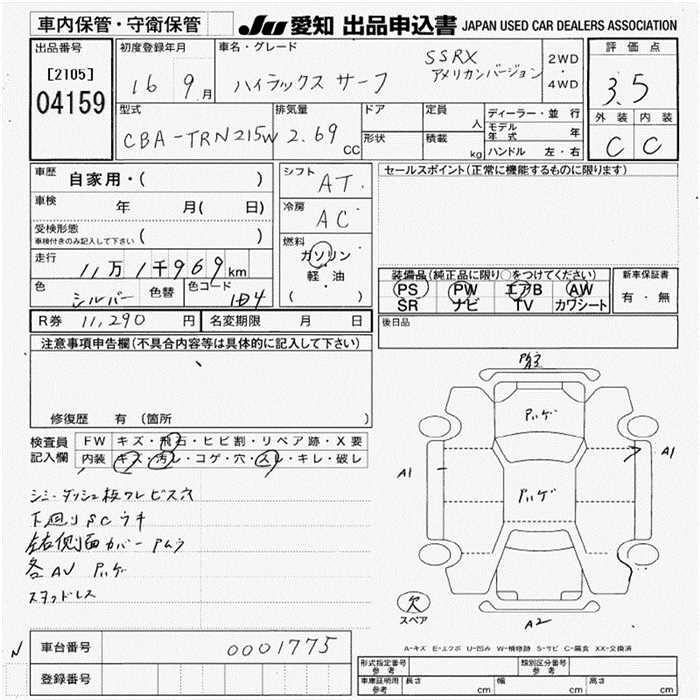 車内保管・守衛保管
JU 愛知 出品申込書 JAPAN USED CAR DEALERS ASSOCIATION
出品番号
[2105]
04159
初度登録年月
16 9月
車名・グレード
ハイラックス サーフ
SSRX
アメリカンバージョン
2WD
・
4WD
評価点
3.5
外装 内装
C C
型式
CBA-TRN215W
排気量
2.69 cc
ドア
形状
定員 人
積載 kg
ディーラー・並行
モデル年式 年
ハンドル 左・右
車歴
自家用・( )
車検 年 月( 日)
受検形態
車検付きのみ記入して下さい ( )
走行
11万1千969km
色 シルバー 色替 色コード 1D4
シフト AT
冷房 AC
燃料
ガソリン
軽・油
( )
セールスポイント(正常に機能するものに限ります)
装備品(純正品に限り○をつけてください)
PS PW エアB AW
SR ナビ TV カワシート
新車保証書
有・無
R券 11,290 円 名変期限 月 日
後日品
注意事項申告欄(不具合内容等は具体的に記入して下さい)
修復歴 有 (箇所 )
検査員
記入欄
FW キズ・飛石・ヒビ割・リペア跡・X要
内装 キズ・汚レ・コゲ・穴・スレ・キレ・破レ
下回りSCウキ
左右側面カバー
各AW
スタッドレス
A1
A1
A2
欠
スペア
A-キズ E-エクボ U-凹み W-補修跡 S-サビ C-腐食 XX-交換済
N
車台番号 0001775
登録番号
形式指定番号 参考
類別区分番号 参考
車庫証明用 参考 長さ cm 幅 cm 高さ cm